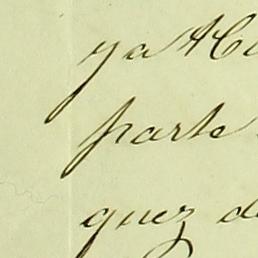 ya
parte
quez de